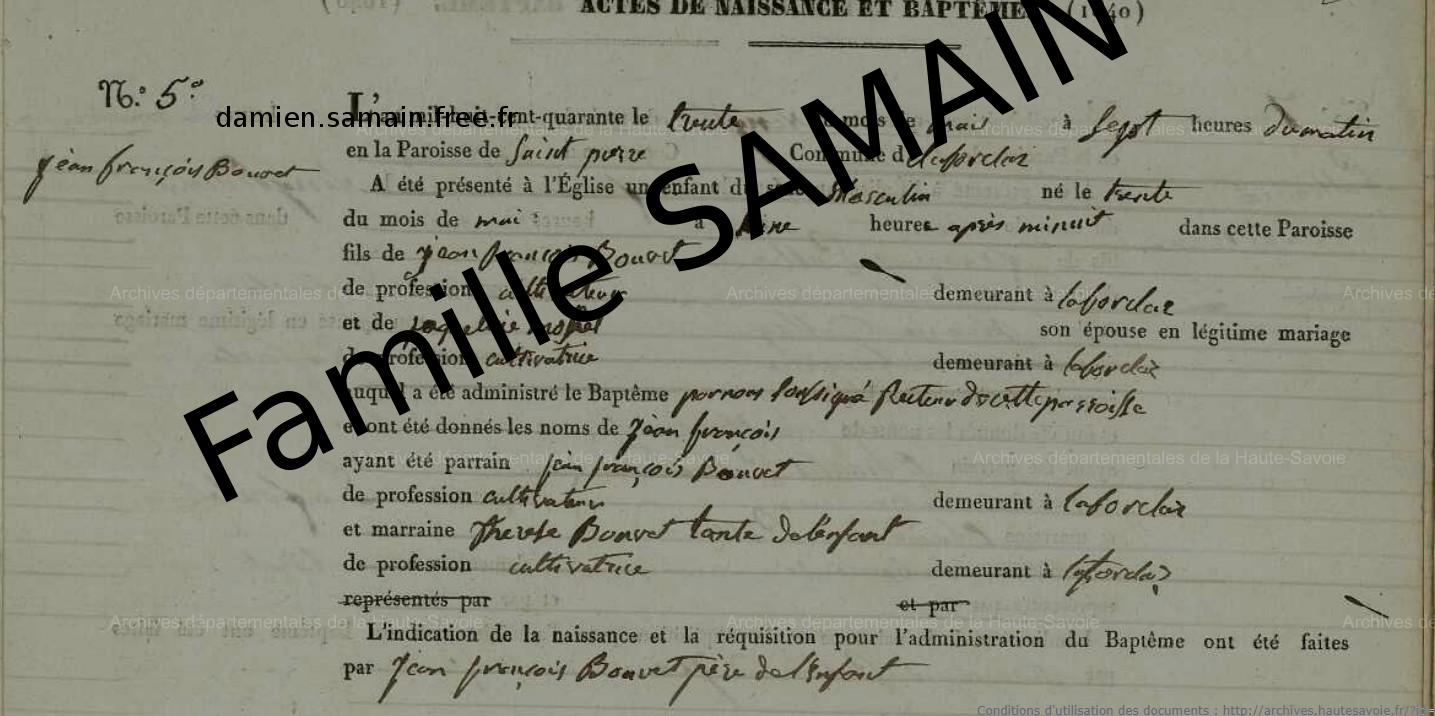 ACTES DE NAISSANCE ET BAPTÊME (1840)
N.º 5º
damien.samain.free.fr
Famille SAMAIN
jean françois Bouvet
L'an mil huit-cent-quarante le trente du mois de mai à sept heures du matin
en la Paroisse de Saint Commune de
A été présenté à l'Église un enfant du sexe Masculin né le trente
du mois de mai à une heures après minuit dans cette Paroisse
fils de jean françois Bouvet
de profession cultivateur demeurant à
et de son épouse en légitime mariage
de profession cultivatrice demeurant à
auquel a été administré le Baptême par nous soussigné Recteur de cette parroisse
et ont été donnés les noms de jean françois
ayant été parrain jean françois Bouvet
de profession cultivateur demeurant à
et marraine Therese Bouvet tante de l'enfant
de profession cultivatrice demeurant à
représentés par et par
L'indication de la naissance et la réquisition pour l'administration du Baptême ont été faites
par Jean françois Bouvet père de l'Enfant
Archives départementales de la Haute-Savoie
Conditions d'utilisation des documents : http://archives.hautesavoie.fr/?id=